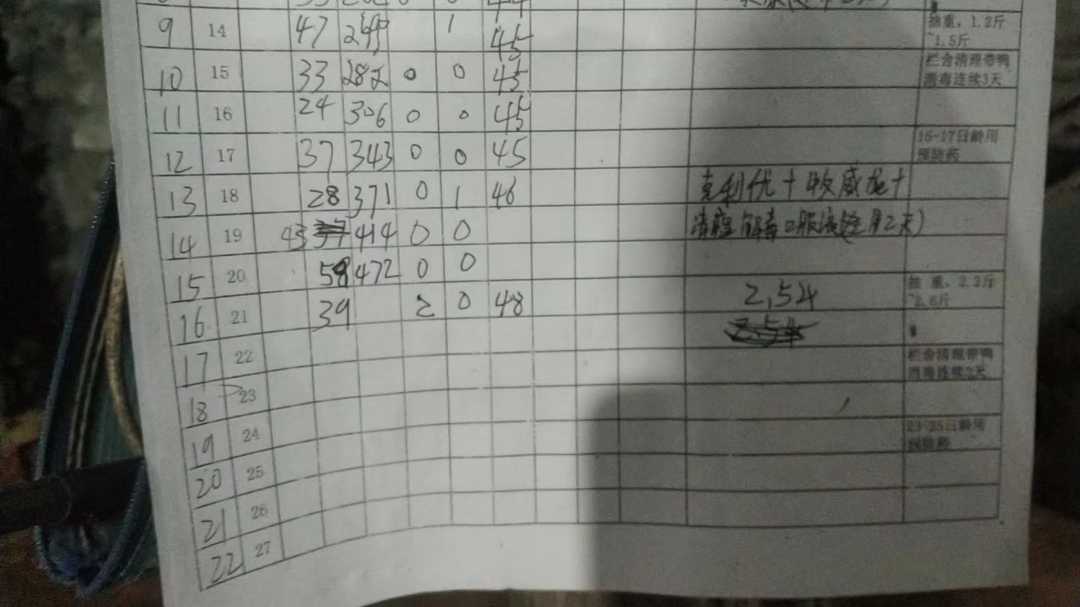 9 14 47 249 1 45 抽重，1.2斤
~1.5斤
10 15 33 282 0 0 45 栏舍清理带鸭
消毒连续3天
11 16 24 306 0 0 45
12 17 37 343 0 0 45 16-17日龄用
预防药
13 18 28 371 0 1 46 克利优+收威龙+
14 19 43 414 0 0 清瘟解毒口服液 用2天)
15 20 58 472 0 0
16 21 39 2 0 48 2.54 抽重，2.2斤
~2.6斤
17 22 栏舍清理带鸭
消毒连续3天
18 23
19 24 23-25日龄用
预防药
20 25
21 26
22 27